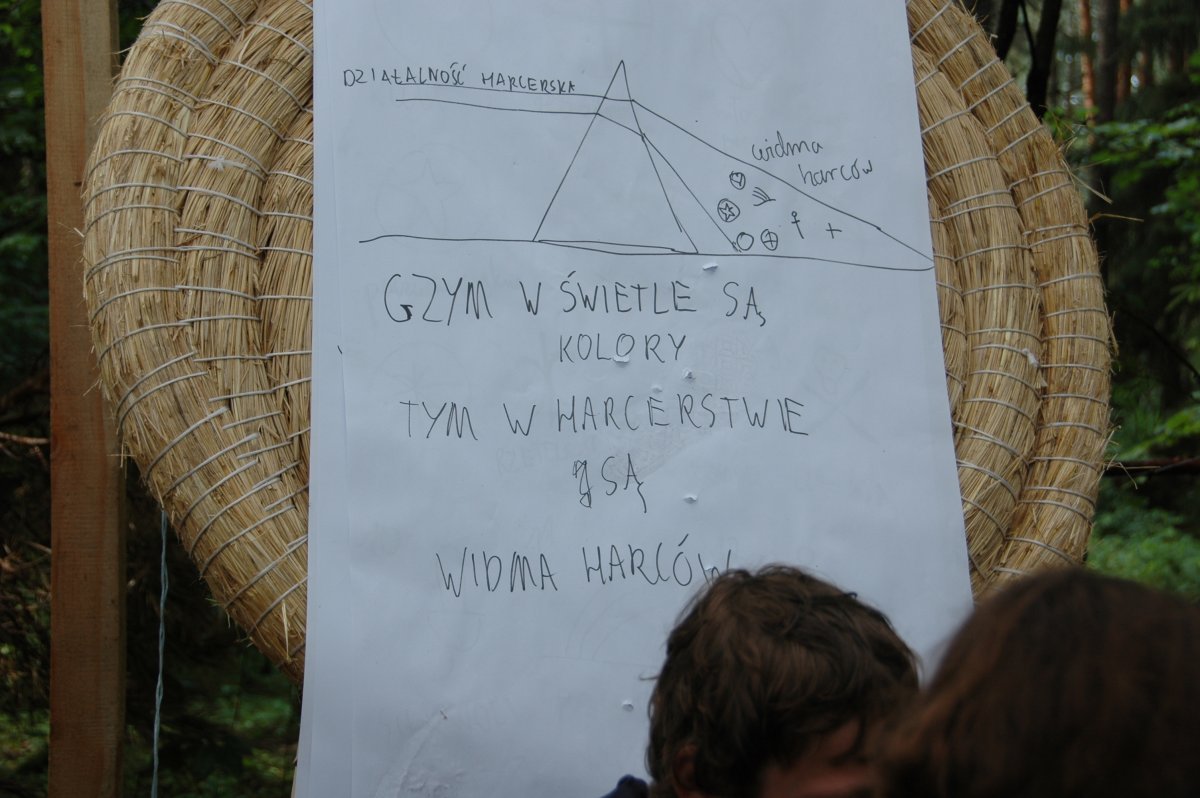 DZIAŁALNOŚĆ HARCERSKA
widma
harców
CZYM W ŚWIETLE SĄ
KOLORY
TYM W HARCERSTWIE
SĄ
WIDMA HARCÓW